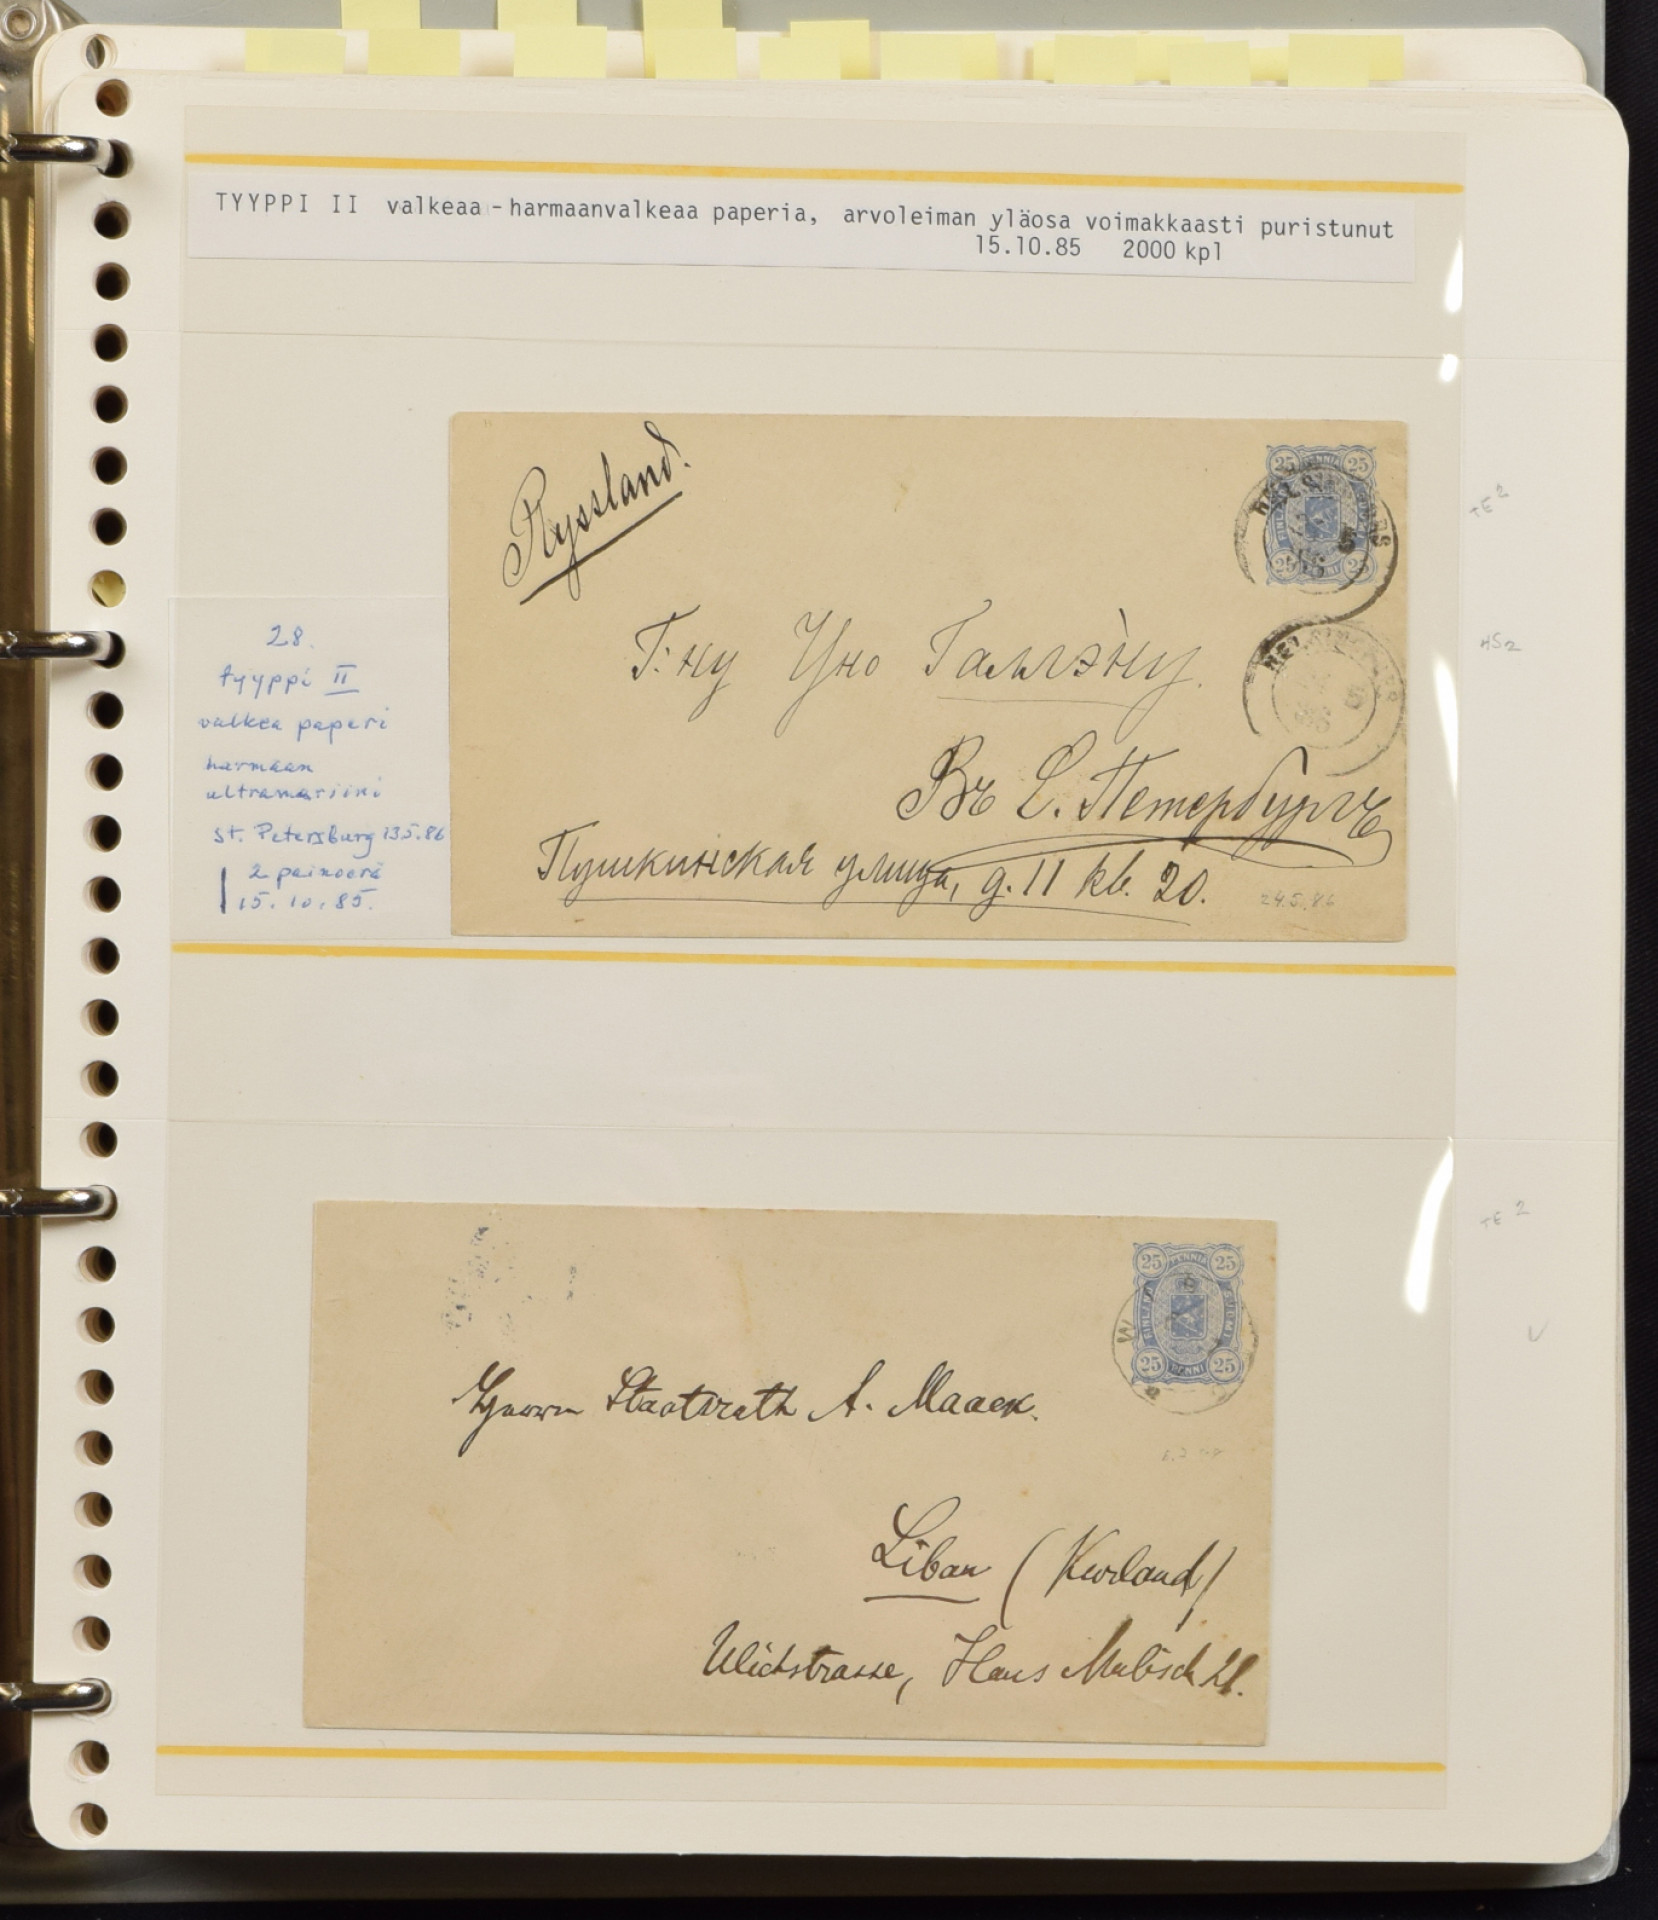 TYYPPI II valkeaa - harmaanvalkeaa paperia, arvoleiman yläosa voimakkaasti puristunut
15.10.85 2000 kpl
Ryssland.
25 PENNIA 25
25 PENNI 25
HELSINGFORS
Г:ну Уно Галлэну.
Въ С. Петербургъ
Пушкинская улица, д. 11 кв. 20.
24.5.86
28.
tyyppi II
valkea paperi
harmaan
ultramariini
St. Petersburg 13.5.86
2 painoerä
15.10.85.
TE 2
HS2
25 PENNIA 25
FINLAND SUOMI
25 PENNI 25
Herrn Staatsrath A. Maack.
Libau (Kurland)
Ulichstrasse, Haus
TE 2